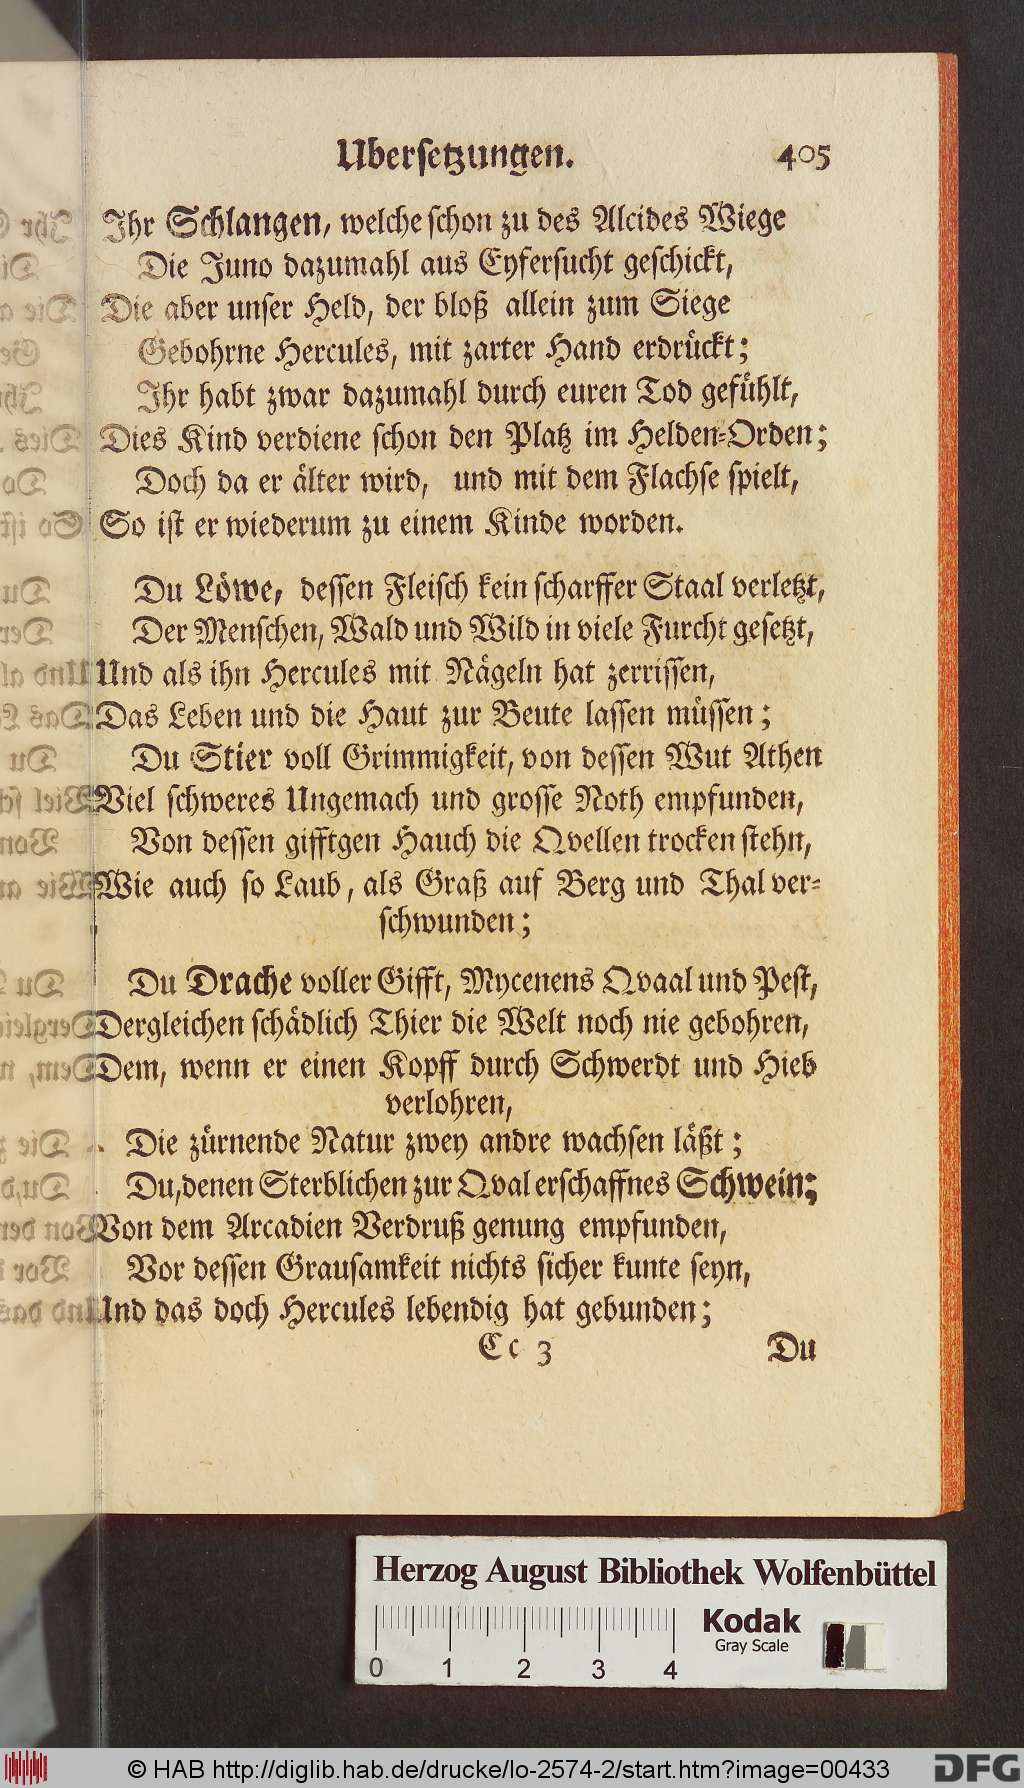 Ubersetzungen. 405
Ihr Schlangen, welche schon zu des Alcides Wiege
Die Juno dazumahl aus Eyfersucht geschickt,
Die aber unser Held, der bloß allein zum Siege
Gebohrne Hercules, mit zarter Hand erdrückt;
Ihr habt zwar dazumahl durch euren Tod gefühlt,
Dies Kind verdiene schon den Platz im Helden=Orden;
Doch da er älter wird, und mit dem Flachse spielt,
So ist er wiederum zu einem Kinde worden.
Du Löwe, dessen Fleisch kein scharffer Staal verletzt,
Der Menschen, Wald und Wild in viele Furcht gesetzt,
Und als ihn Hercules mit Nägeln hat zerrissen,
Das Leben und die Haut zur Beute lassen müssen;
Du Stier voll Grimmigkeit, von dessen Wut Athen
Viel schweres Ungemach und grosse Noth empfunden,
Von dessen gifftgen Hauch die Qvellen trocken stehn,
Wie auch so Laub, als Graß auf Berg und Thal ver=
schwunden;
Du Drache voller Gifft, Mycenens Qvaal und Pest,
Dergleichen schädlich Thier die Welt noch nie gebohren,
Dem, wenn er einen Kopff durch Schwerdt und Hieb
verlohren,
Die zürnende Natur zwey andre wachsen läßt;
Du, denen Sterblichen zur Qval erschaffnes Schwein;
Von dem Arcadien Verdruß genung empfunden,
Vor dessen Grausamkeit nichts sicher kunte seyn,
Und das doch Hercules lebendig hat gebunden;
Cc 3 Du
Herzog August Bibliothek Wolfenbüttel
Kodak
Gray Scale
0 1 2 3 4
© HAB http://diglib.hab.de/drucke/lo-2574-2/start.htm?image=00433
DFG